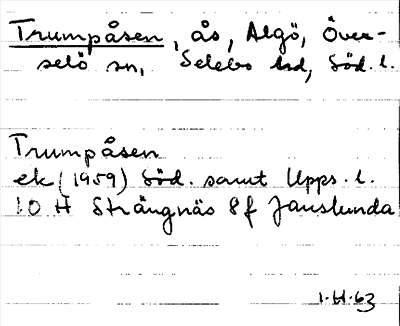 Trumpåsen, ås, Algö, Över-
selö sn, Selebo hd, Söd. l.
Trumpåsen
ek (1959) Söd. samt Upps. l.
10 H Strängnäs 8f Jauslunda
1.H.63